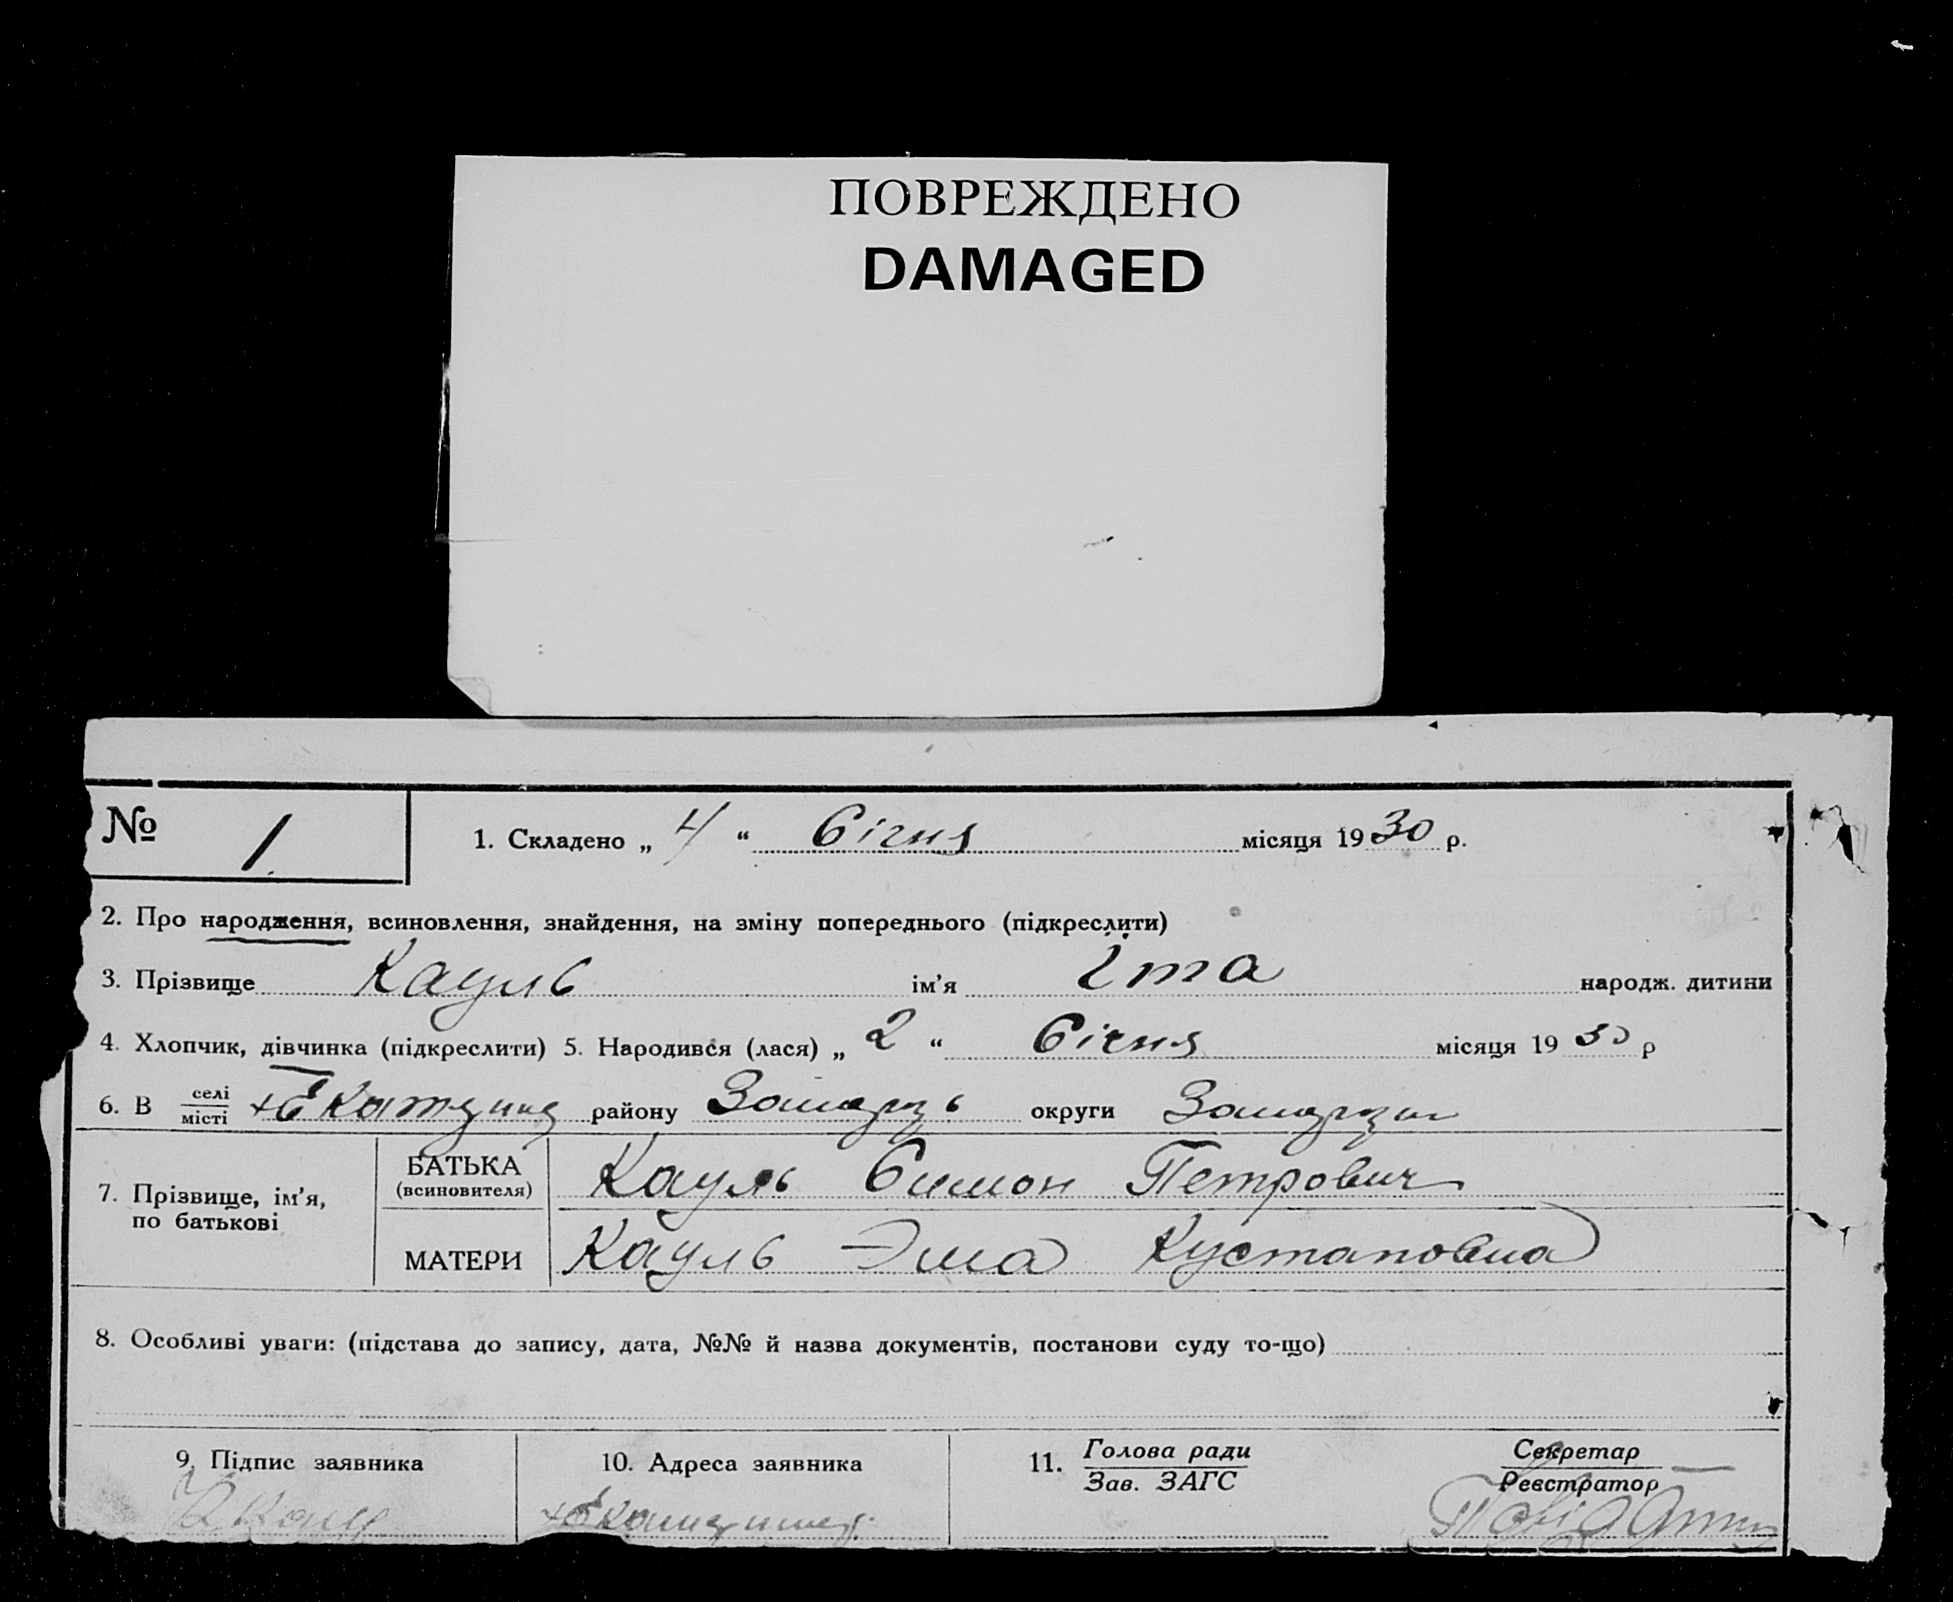 ПОВРЕЖДЕНО
DAMAGED
№ 1.
1. Складено „ 4 “ Січня місяця 1930 р.
2. Про народження, всиновлення, знайдення, на зміну попереднього (підкреслити)
3. Прізвище Кауль ім'я Іта народж. дитини
4. Хлопчик, дівчинка (підкреслити) 5. Народився (лася) „ 2 “ Січня місяця 19 30 р
6. В селі / місті району округи
7. Прізвище, ім'я, по батькові
БАТЬКА (всиновителя) Кауль Симон Петрович
МАТЕРИ Кауль Эма Кустаповна
8. Особливі уваги: (підстава до запису, дата, №№ й назва документів, постанови суду то-що)
9. Підпис заявника
10. Адреса заявника
11. Голова ради / Зав. ЗАГС
Секретар / Реєстратор